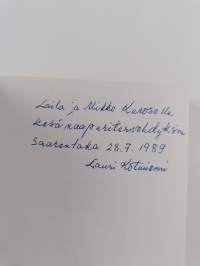 Laila ja Mikko Kurosella
kesänaapuritervehdyksin
Saarentaka 28.7.1989
Lauri Kotiniemi